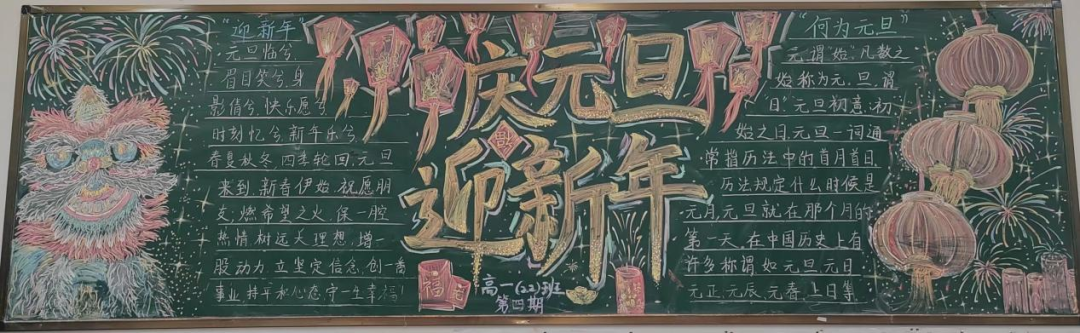 “迎新年”
元旦临兮
眉目笑兮,身
影倩兮,快乐愿兮,
时刻忆兮,新年乐兮
春夏秋冬,四季轮回,元旦
来到,新春伊始,祝愿朋
友,燃希望之火,保一腔
热情树远大理想,增一
股动力立坚定信念,创一番
事业,持平和心态,守一生幸福!
庆元旦
迎新年
福
高一(22)班
第四期
“何为元旦”
元,谓“始”,凡数之
始称为元,旦,谓
“日”元旦初意,初
始之日,元旦一词通
常指历法中的首月首日
历法规定什么时候是
元月,元旦就在那个月的
第一天,在中国历史上有
许多称谓如元旦元日
元正,元辰,元春,上日等